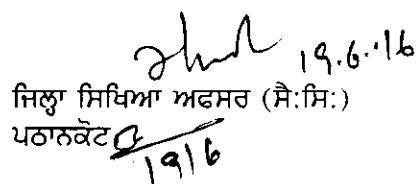 19.6.'16
ਜਿਲ੍ਹਾ ਸਿਖਿਆ ਅਫਸਰ (ਸੈ:ਸਿ:)
ਪਠਾਨਕੋਟ
1916